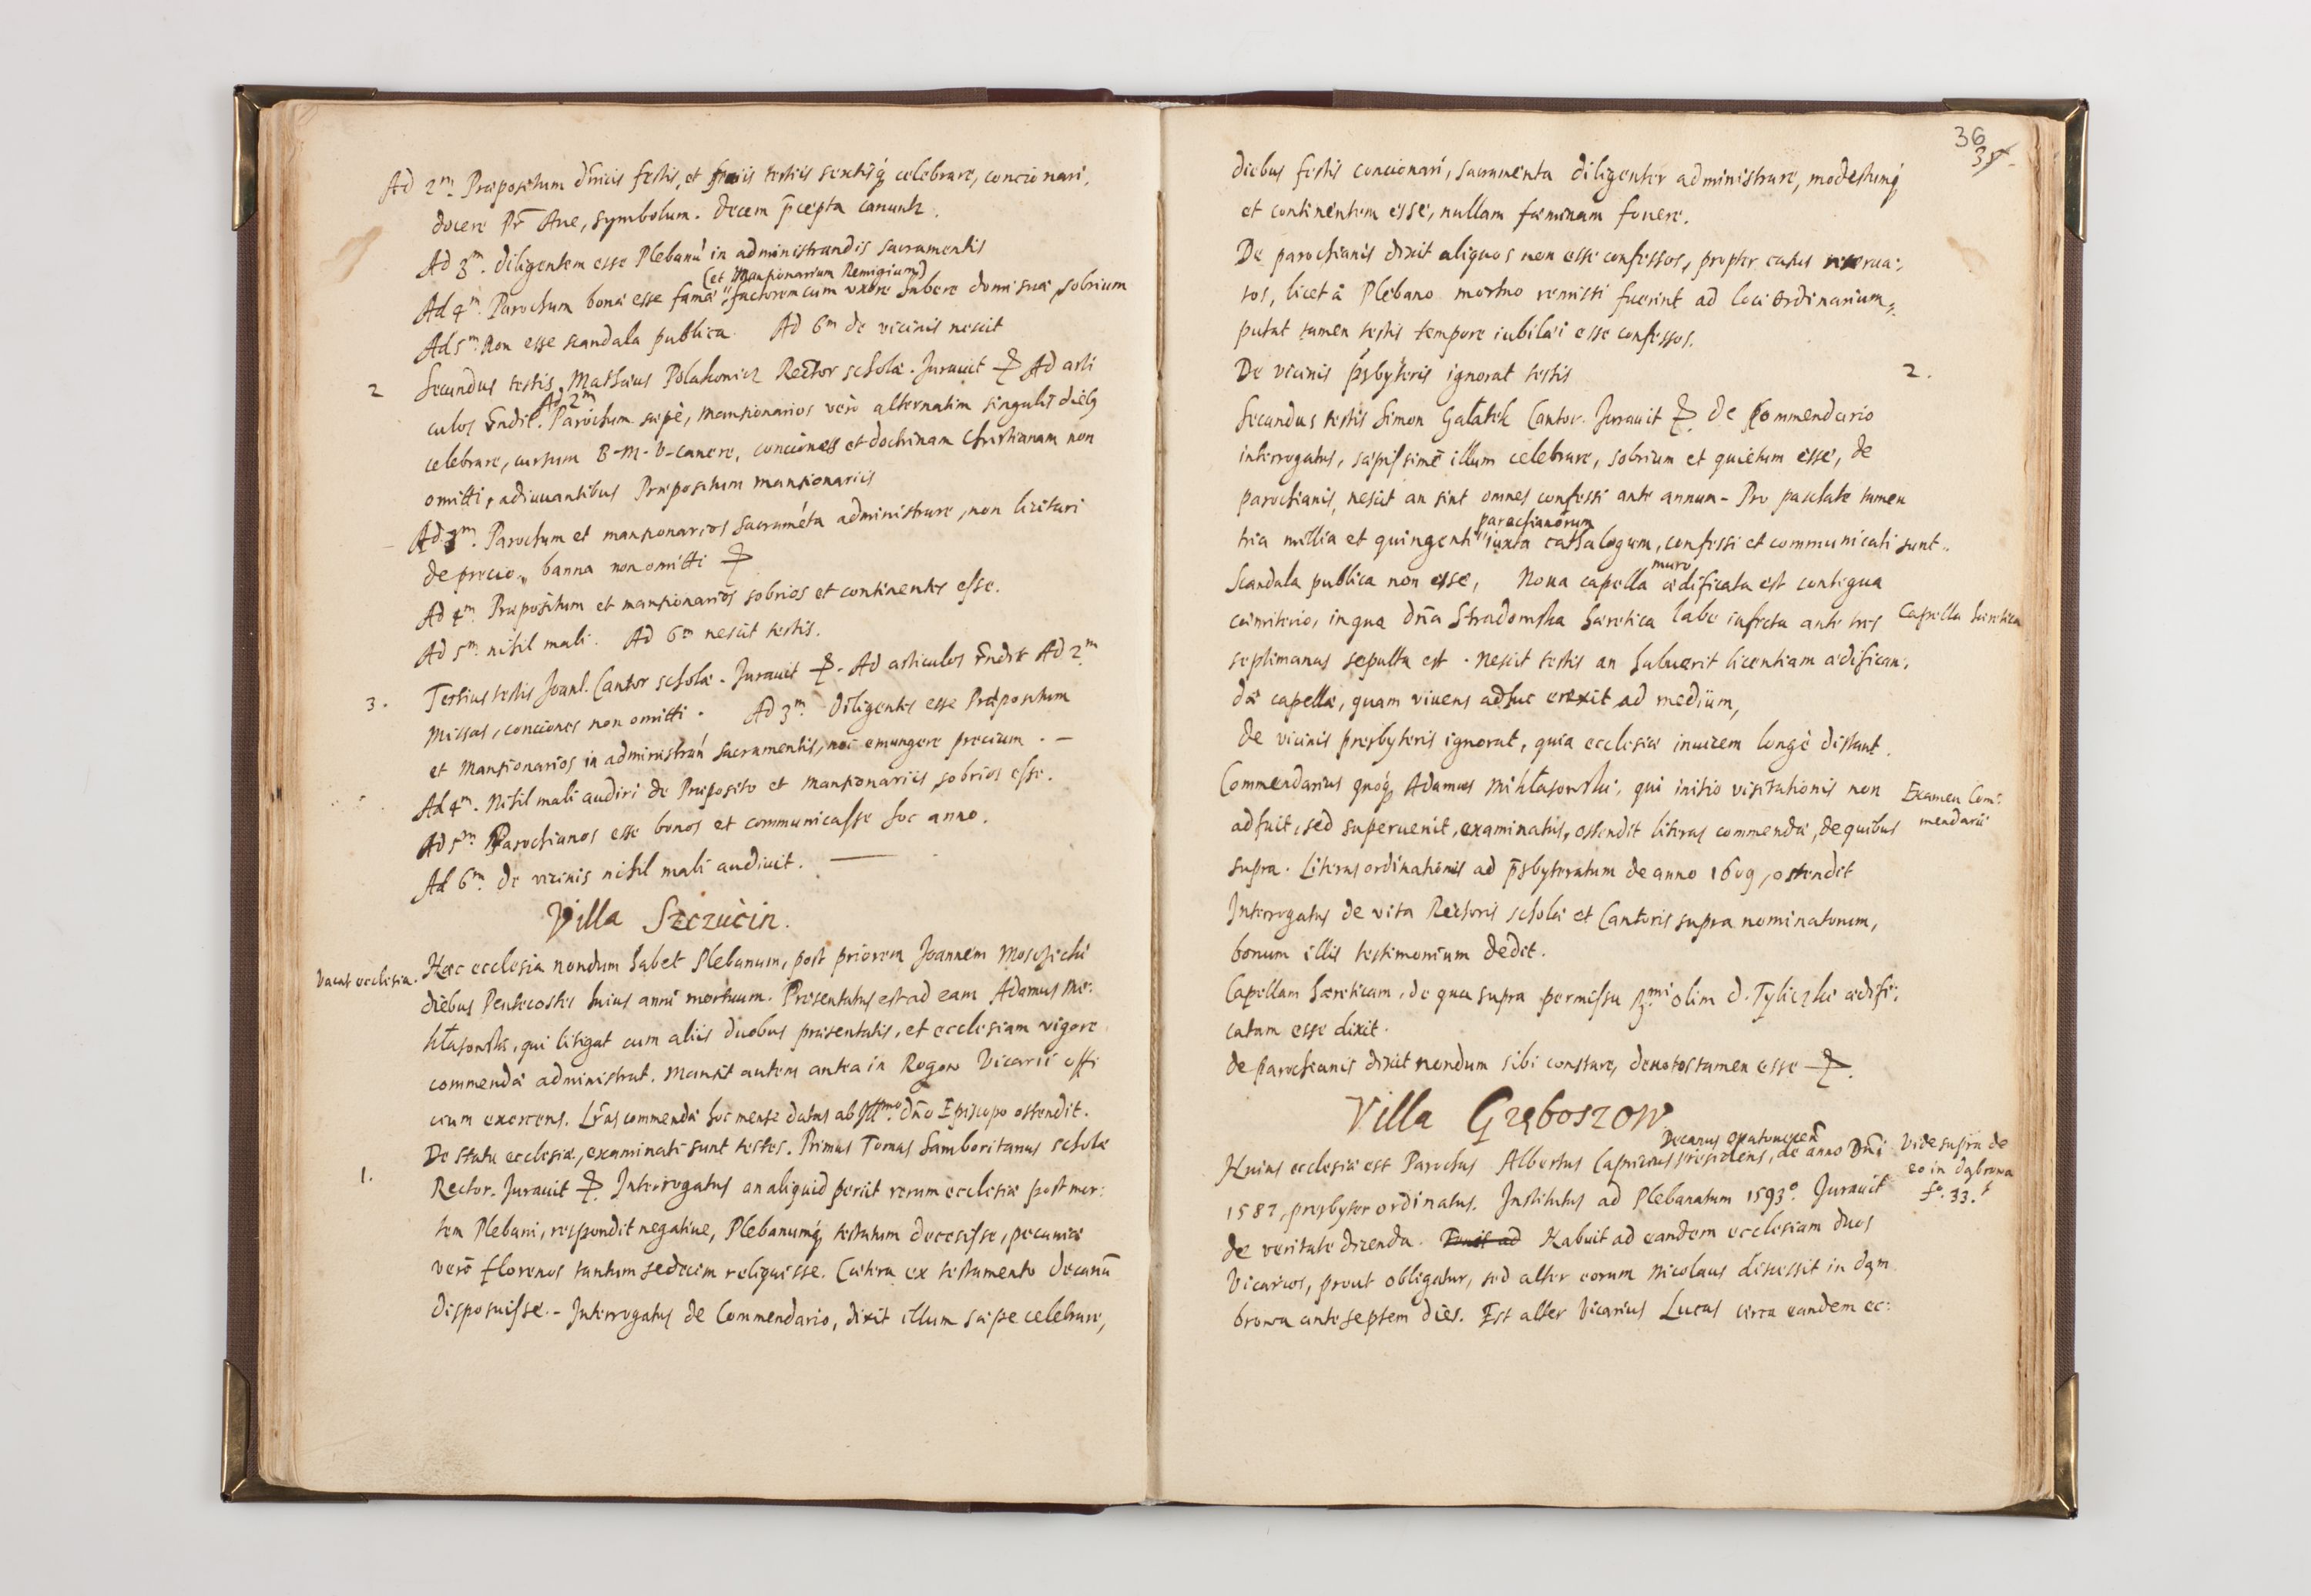 Ad 2m. Præpositum dnicis festis, et feriis tertiis sextisq celebrare, concionari,
docere Pr Aue, symbolum. Decem pcepta canunt.
Ad 3m. diligentem esse Plebanu in administrandis sacramentis
(et Mansionarium Remigium)
Ad 4m. Parochum bonæ esse famæ, factorem cum uxore habere domi suæ, sobrium
Ad 5m. Non esse scandala publica. Ad 6m de vicinis nescit
2 Secundus testis, Mathæus Polakowicz Rector scholæ. Jurauit Ad arti
Ad 2m
culos rndit. Parochum sæpè, mansionarios verò alternatim singulis dieb
celebrare, cursum B-M-V-canere, conciones et doctrinam christianam non
omitti, adiuuantibus Præpositum mansionariis
Ad 3m. Parochum et mansionarios sacraméta administrare, non licitari
de precio, banna non omitti
Ad 4m. Præpositum et mansionarios sobrios et continentes esse.
Ad 5m. nihil mali. Ad 6m nescit testis.
3. Tertius testis Joanl. Cantor scholæ. Jurauit. Ad articulos rndit Ad 2m.
Missas, conciones non omitti. Ad 3m. Diligentes esse Præpositum
et Mansionarios in administran sacramentis, nec emungere precium. -
Ad 4m. Nihil mali audiri de Præposito et mansionariis, sobrios esse.
Ad 5m Parochianos esse bonos et communicasse hoc anno.
Ad 6m. de vicinis nihil mali audiuit.
Villa Szczucin.
Vacat ecclesia. Hæc ecclesia nondum habet Plebanum, post priorem Joannem
diebus Pentecostes huius anni mortuum. Præsentatus est ad eam Adamus Mi:
kłasowski, qui litigat cum aliis duobus præsentatis, et ecclesiam vigore
commendæ administrat. Mansit autem antea in Rogow Vicarii offi
cium exercens. Lras commendæ hoc mense datas ab Illmo. Dno Episcopo ostendit.
De statu ecclesiæ, examinati sunt testes. Primus Tomas Samboritanus scholæ
1. Rector. Jurauit. Interrogatus an aliquid perit rerum ecclesiæ post mor:
tem Plebani, respondit negatiue, Plebanumq testatum decessisse, pecuniæ
verò florenos tantum sedecim reliquisse. Cætera ex testamento Decanu
disposuisse. - Interrogatus de Commendario, dixit illum sæpe celebrare,
36
diebus festis concionari, sacramenta diligenter administrare, modestumq
et continentem esse, nullam fæminam fouere.
De parochianis dixit aliquos non esse confessos, propter casus reserua:
tos, licet à Plebano mortuo remissi fuerint ad loci ordinarium,
putat tamen testis tempore iubilæi esse confessos.
De vicinis psbyteris ignorat testis
2.
Secundus testis Simon Gałatek Cantor. Jurauit. De Commendario
interrogatus, sæpissimè illum celebrare, sobrium et quietum esse, de
parochianis, nescit an sint omnes confessi ante annum - Pro paschate tamen
parochianorum
tria millia et quingenti iuxta cathalogum, confessi et communicati sunt.
muro
Scandala publica non esse, Noua capella ædificata est contigua
cæmiterio, in qua dna Stradomska hæretica labe infecta ante tres Capella hæretica
septimanas sepulta est. Nescit testis an habuerit licentiam ædifican:
dæ capellæ, quam viuens adhuc erexit ad medium,
de vicinis presbyteris ignorat, quia ecclesiæ inuicem longè distant.
Commendarius quoq Adamus Mikłasowski, qui initio visitationis non
Examen Com:
mendarii
adfuit, sed superuenit, examinatus, ostendit literas commendæ, de quibus
supra. Literas ordinationis ad psbyteratum de anno 1609, ostendit
Interrogatus de vita Rectoris scholæ et Cantoris supra nominatorum,
bonum illis testimonium dedit.
Capellam hæreticam, de qua supra permissu Rmi olim D. Tyliczki ædifi:
catam esse dixit.
de parochianis dixit nondum sibi constare, deuotos tamen esse
Villa Gręboszow
Decanus
Huius ecclesiæ est Parochus Albertus Caprinus præsidens, de anno Dni
Vide supra de
eo in dąbrowa
fo. 33.t
1587, presbyter ordinatus. Institutus ad Plebanatum 1593o. Jurauit
de veritate dicenda. Habuit ad eandem ecclesiam duos
Vicarios, prout obligatur, sed alter eorum Nicolaus discessit in Dąm
browa ante septem dies. Est alter Vicarius Lucas circa eandem ec: